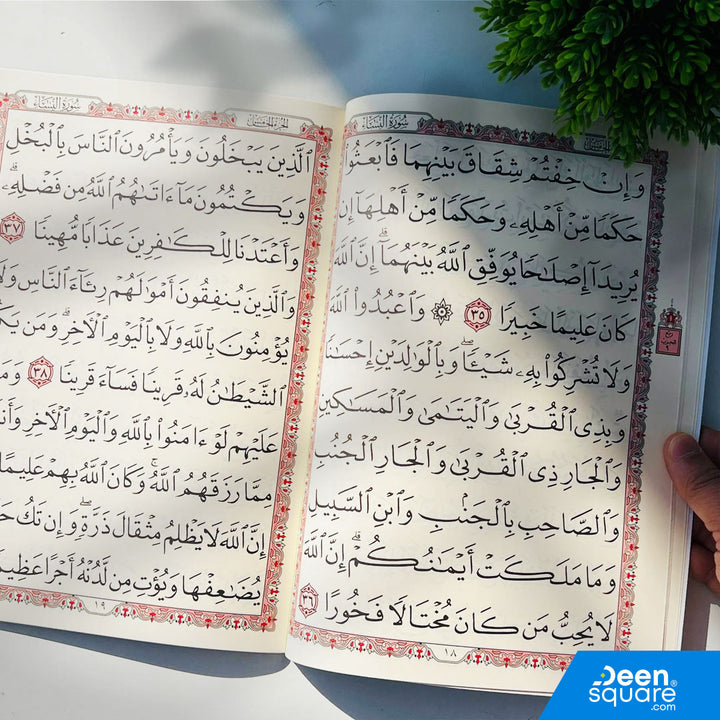 سُورَةُ النِّسَاءِ
وَإِنْ خِفْتُمْ شِقَاقَ بَيْنِهِمَا فَٱبْعَثُوا۟
حَكَمًا مِّنْ أَهْلِهِۦ وَحَكَمًا مِّنْ أَهْلِهَآ إِن
يُرِيدَآ إِصْلَٰحًا يُوَفِّقِ ٱللَّهُ بَيْنَهُمَآ ۗ إِنَّ ٱللَّهَ
كَانَ عَلِيمًا خَبِيرًا ٣٥ ۞ وَٱعْبُدُوا۟ ٱللَّهَ
وَلَا تُشْرِكُوا۟ بِهِۦ شَيْـًٔا ۖ وَبِٱلْوَٰلِدَيْنِ إِحْسَٰنًا
وَبِذِى ٱلْقُرْبَىٰ وَٱلْيَتَٰمَىٰ وَٱلْمَسَٰكِينِ
وَٱلْجَارِ ذِى ٱلْقُرْبَىٰ وَٱلْجَارِ ٱلْجُنُبِ
وَٱلصَّاحِبِ بِٱلْجَنۢبِ وَٱبْنِ ٱلسَّبِيلِ
وَمَا مَلَكَتْ أَيْمَٰنُكُمْ ۗ إِنَّ ٱللَّهَ
لَا يُحِبُّ مَن كَانَ مُخْتَالًا فَخُورًا ٣٦
١٨
سُورَةُ النِّسَاءِ
الجزء الخامس
ٱلَّذِينَ يَبْخَلُونَ وَيَأْمُرُونَ ٱلنَّاسَ بِٱلْبُخْلِ
وَيَكْتُمُونَ مَآ ءَاتَىٰهُمُ ٱللَّهُ مِن فَضْلِهِۦ ۗ
وَأَعْتَدْنَا لِلْكَٰفِرِينَ عَذَابًا مُّهِينًا ٣٧
وَٱلَّذِينَ يُنفِقُونَ أَمْوَٰلَهُمْ رِئَآءَ ٱلنَّاسِ وَلَا
يُؤْمِنُونَ بِٱللَّهِ وَلَا بِٱلْيَوْمِ ٱلْـَٔاخِرِ ۗ وَمَن
ٱلشَّيْطَٰنُ لَهُۥ قَرِينًا فَسَآءَ قَرِينًا ٣٨
عَلَيْهِمْ لَوْ ءَامَنُوا۟ بِٱللَّهِ وَٱلْيَوْمِ ٱلْـَٔاخِرِ
مِمَّا رَزَقَهُمُ ٱللَّهُ ۚ وَكَانَ ٱللَّهُ بِهِمْ عَلِيمًا
إِنَّ ٱللَّهَ لَا يَظْلِمُ مِثْقَالَ ذَرَّةٍ ۖ وَإِن تَكُ
يُضَٰعِفْهَا وَيُؤْتِ مِن لَّدُنْهُ أَجْرًا عَظِيمًا
١٩
Deen
square®
.com